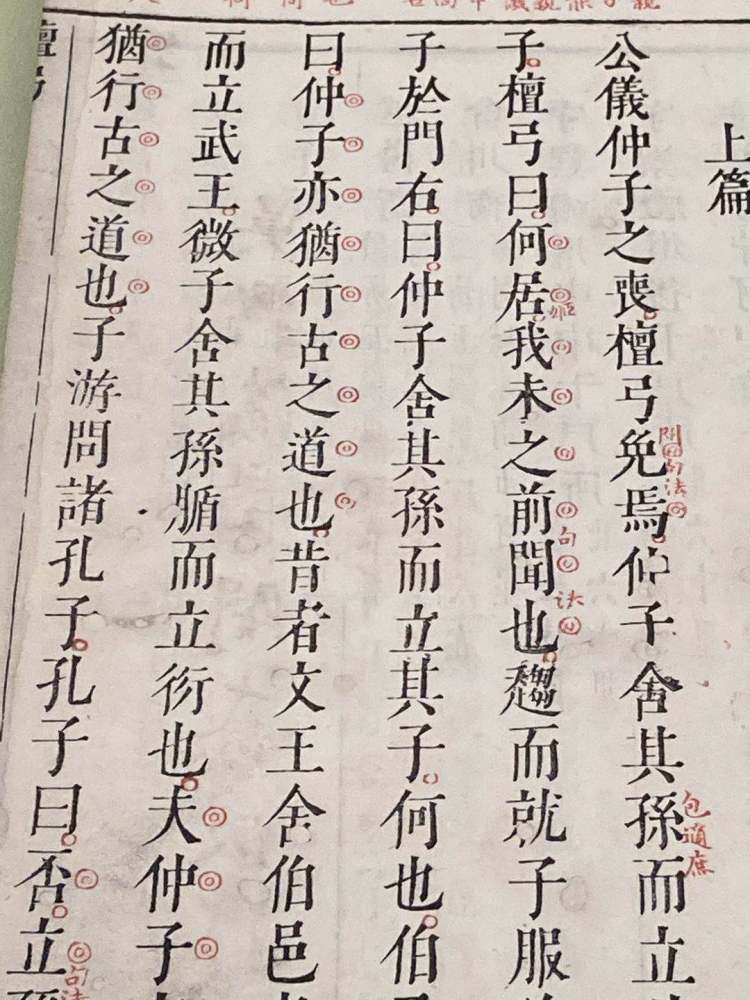 上篇
公儀仲子之喪檀弓免焉仲子舍其孫而立
子檀弓曰何居我未之前聞也趨而就子服
子於門右曰仲子舍其孫而立其子何也伯
曰仲子亦猶行古之道也昔者文王舍伯邑
而立武王微子舍其孫腯而立衍也夫仲子
猶行古之道也子游問諸孔子孔子曰否立
檀弓
姬
句
法
句法
包適庶
句法